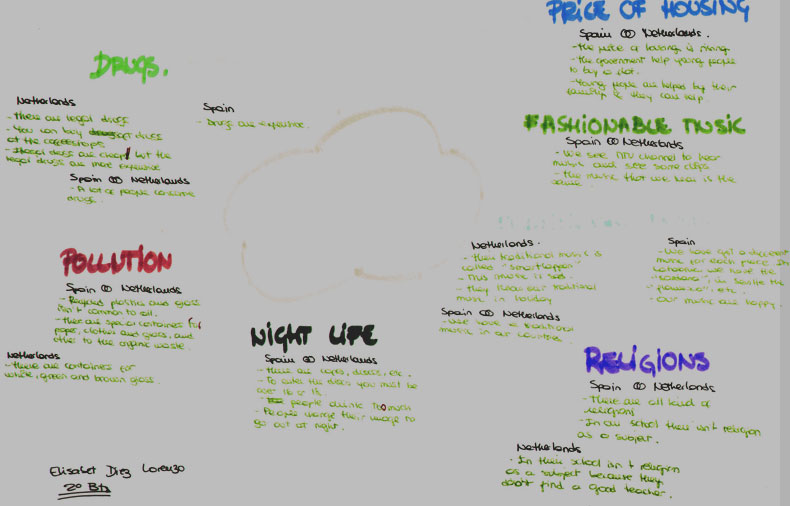 PRICE OF HOUSING
Spain Netherlands.
- the price of housing is rising
- the government help young people
to buy a flat.
- Young people are helped by their
families if they can help.
DRUGS.
Netherlands
- There are legal drugs
- You can buy drugs
at the coffeeshops
- Illegal drugs are cheap but the
legal drugs are more expensive
Spain
- Drugs are expensive.
Spain Netherlands
- A lot of people consume
drugs.
FASHIONABLE MUSIC
Spain Netherlands
- We see MTV channel to hear
music and see some clips
- The music that we hear is the
same
Netherlands.
- their traditional music is
called "smartlappen"
- This music is sad.
- they know our traditional
music in holiday
Spain
- We have got a different
music for each place. In
we have the
"sardana" in Sevilla the
"flamenco", etc.
- Our music are happy.
Spain Netherlands
- We have a traditional
music in our countries.
POLLUTION
Spain Netherlands
- Required plastics and glass
isn't common to all.
- There are special containers for
paper, clothes and glass, and
other to the organic waste.
Netherlands
- there are containers for
white, green and brown glass.
NIGHT LIFE
Spain Netherlands
- there are discos, etc.
- To enter the discos you must be
over 16 or 18.
- people drink too much
- People change their image to
go out at night.
RELIGIONS
Spain Netherlands
- There are all kind of
religions
- In our school there isn't religion
as a subject.
Netherlands
- In their school isn't religion
as a subject because they
don't find a good teacher.
Elisabet Díez Lorenzo
2º Btx